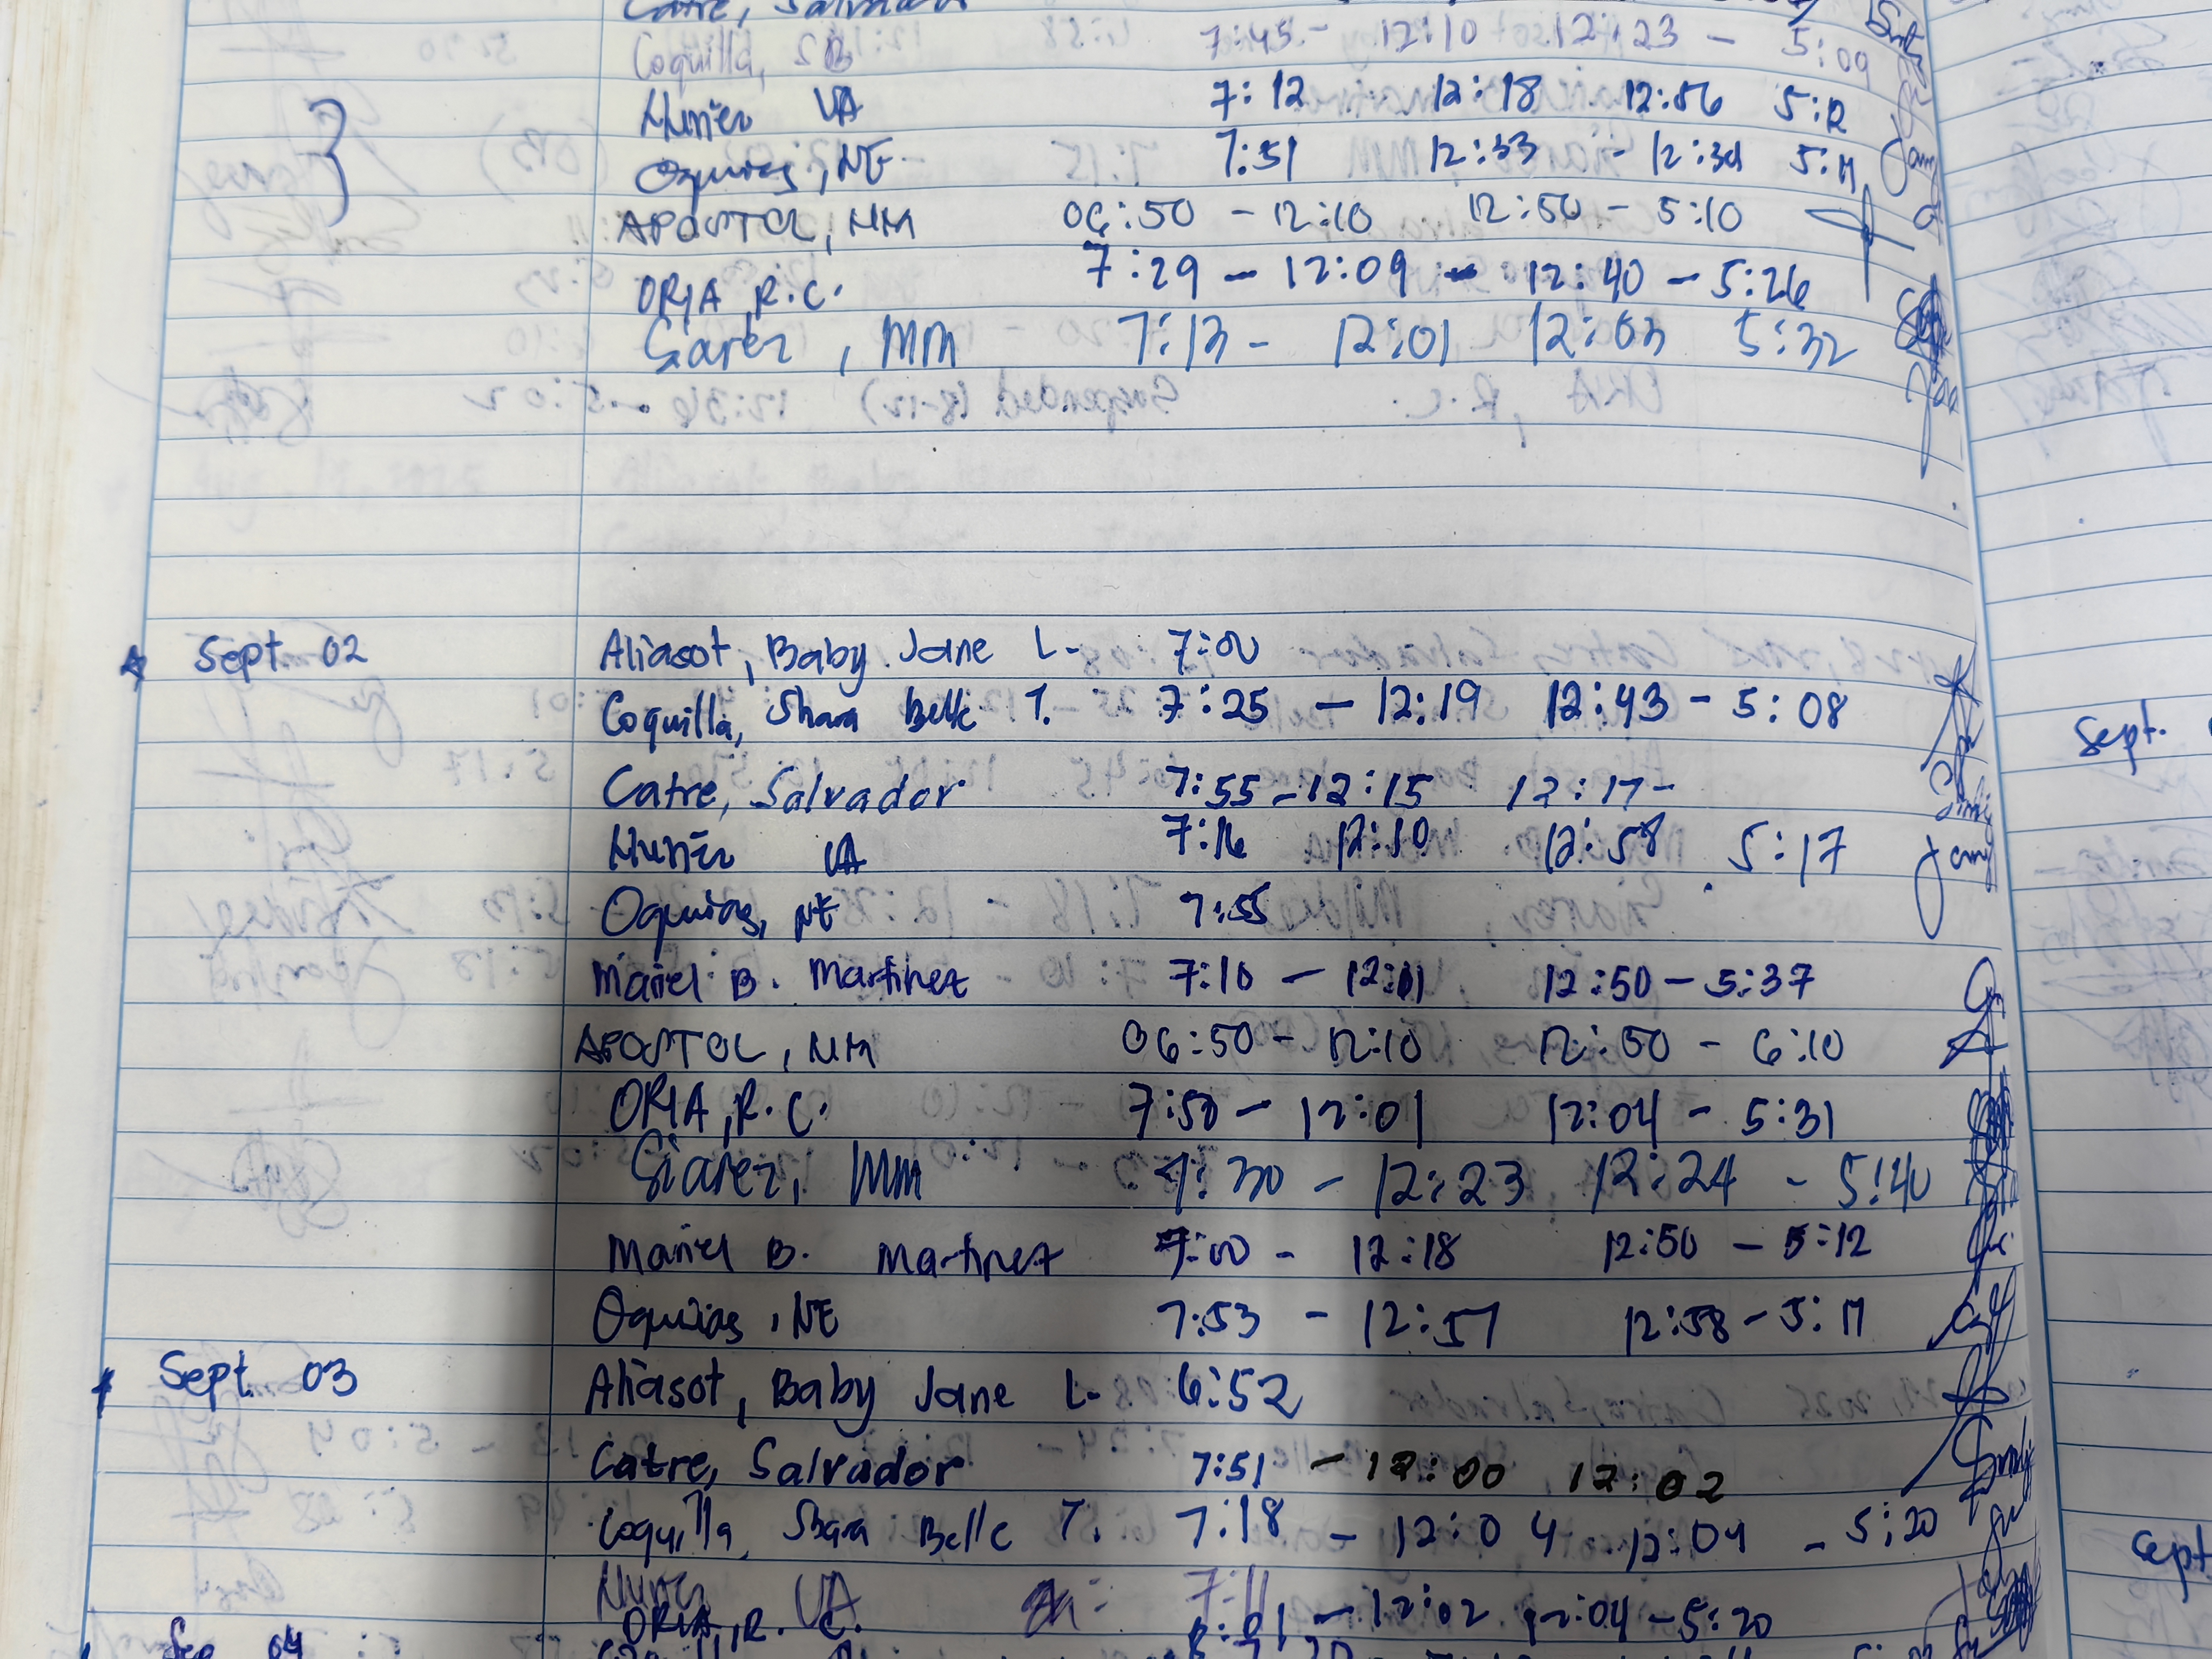 Catre, Salvador
Coquilla, SB 7:45 - 12:10 12:23 - 5:09
Nuñez VA 7:12 12:18 12:56 5:12
Oquias, NE. 7:51 12:33 - 12:34 5:11
APOSTOL, NM 06:50 - 12:10 12:50 - 5:10
ORIA, R.C. 7:29 - 12:09 - 12:40 - 5:26
Giarez, MM 7:13 - 12:01 12:03 5:32
Sept. 02 Aliasot, Baby Jane L. 7:00
Coquilla, Shara Belle T. 7:25 - 12:19 12:43 - 5:08
Catre, Salvador 7:55 - 12:15 12:17 -
Nuñez VA 7:16 12:10 12:58 5:17
Oquias, NE 7:55
Mariel B. Martinez 7:10 - 12:01 12:50 - 5:37
APOSTOL, NM 06:50 - 12:10 12:50 - 6:10
ORIA, R.C. 7:50 - 12:01 12:04 - 5:31
Giarez, MM 7:30 - 12:23 12:24 - 5:40
Mariel B. Martinez 7:00 - 12:18 12:50 - 5:12
Oquias, NE 7:53 - 12:57 12:58 - 5:11
Sept. 03 Aliasot, Baby Jane L. 6:52
Catre, Salvador 7:51 - 12:00 12:02
Coquilla, Shara Belle T. 7:18 - 12:04 12:04 - 5:20
Nuñez VA 7:11
ORIA, R.C. - 12:02 12:04 - 5:20
Sep 04
Sept.
Sept